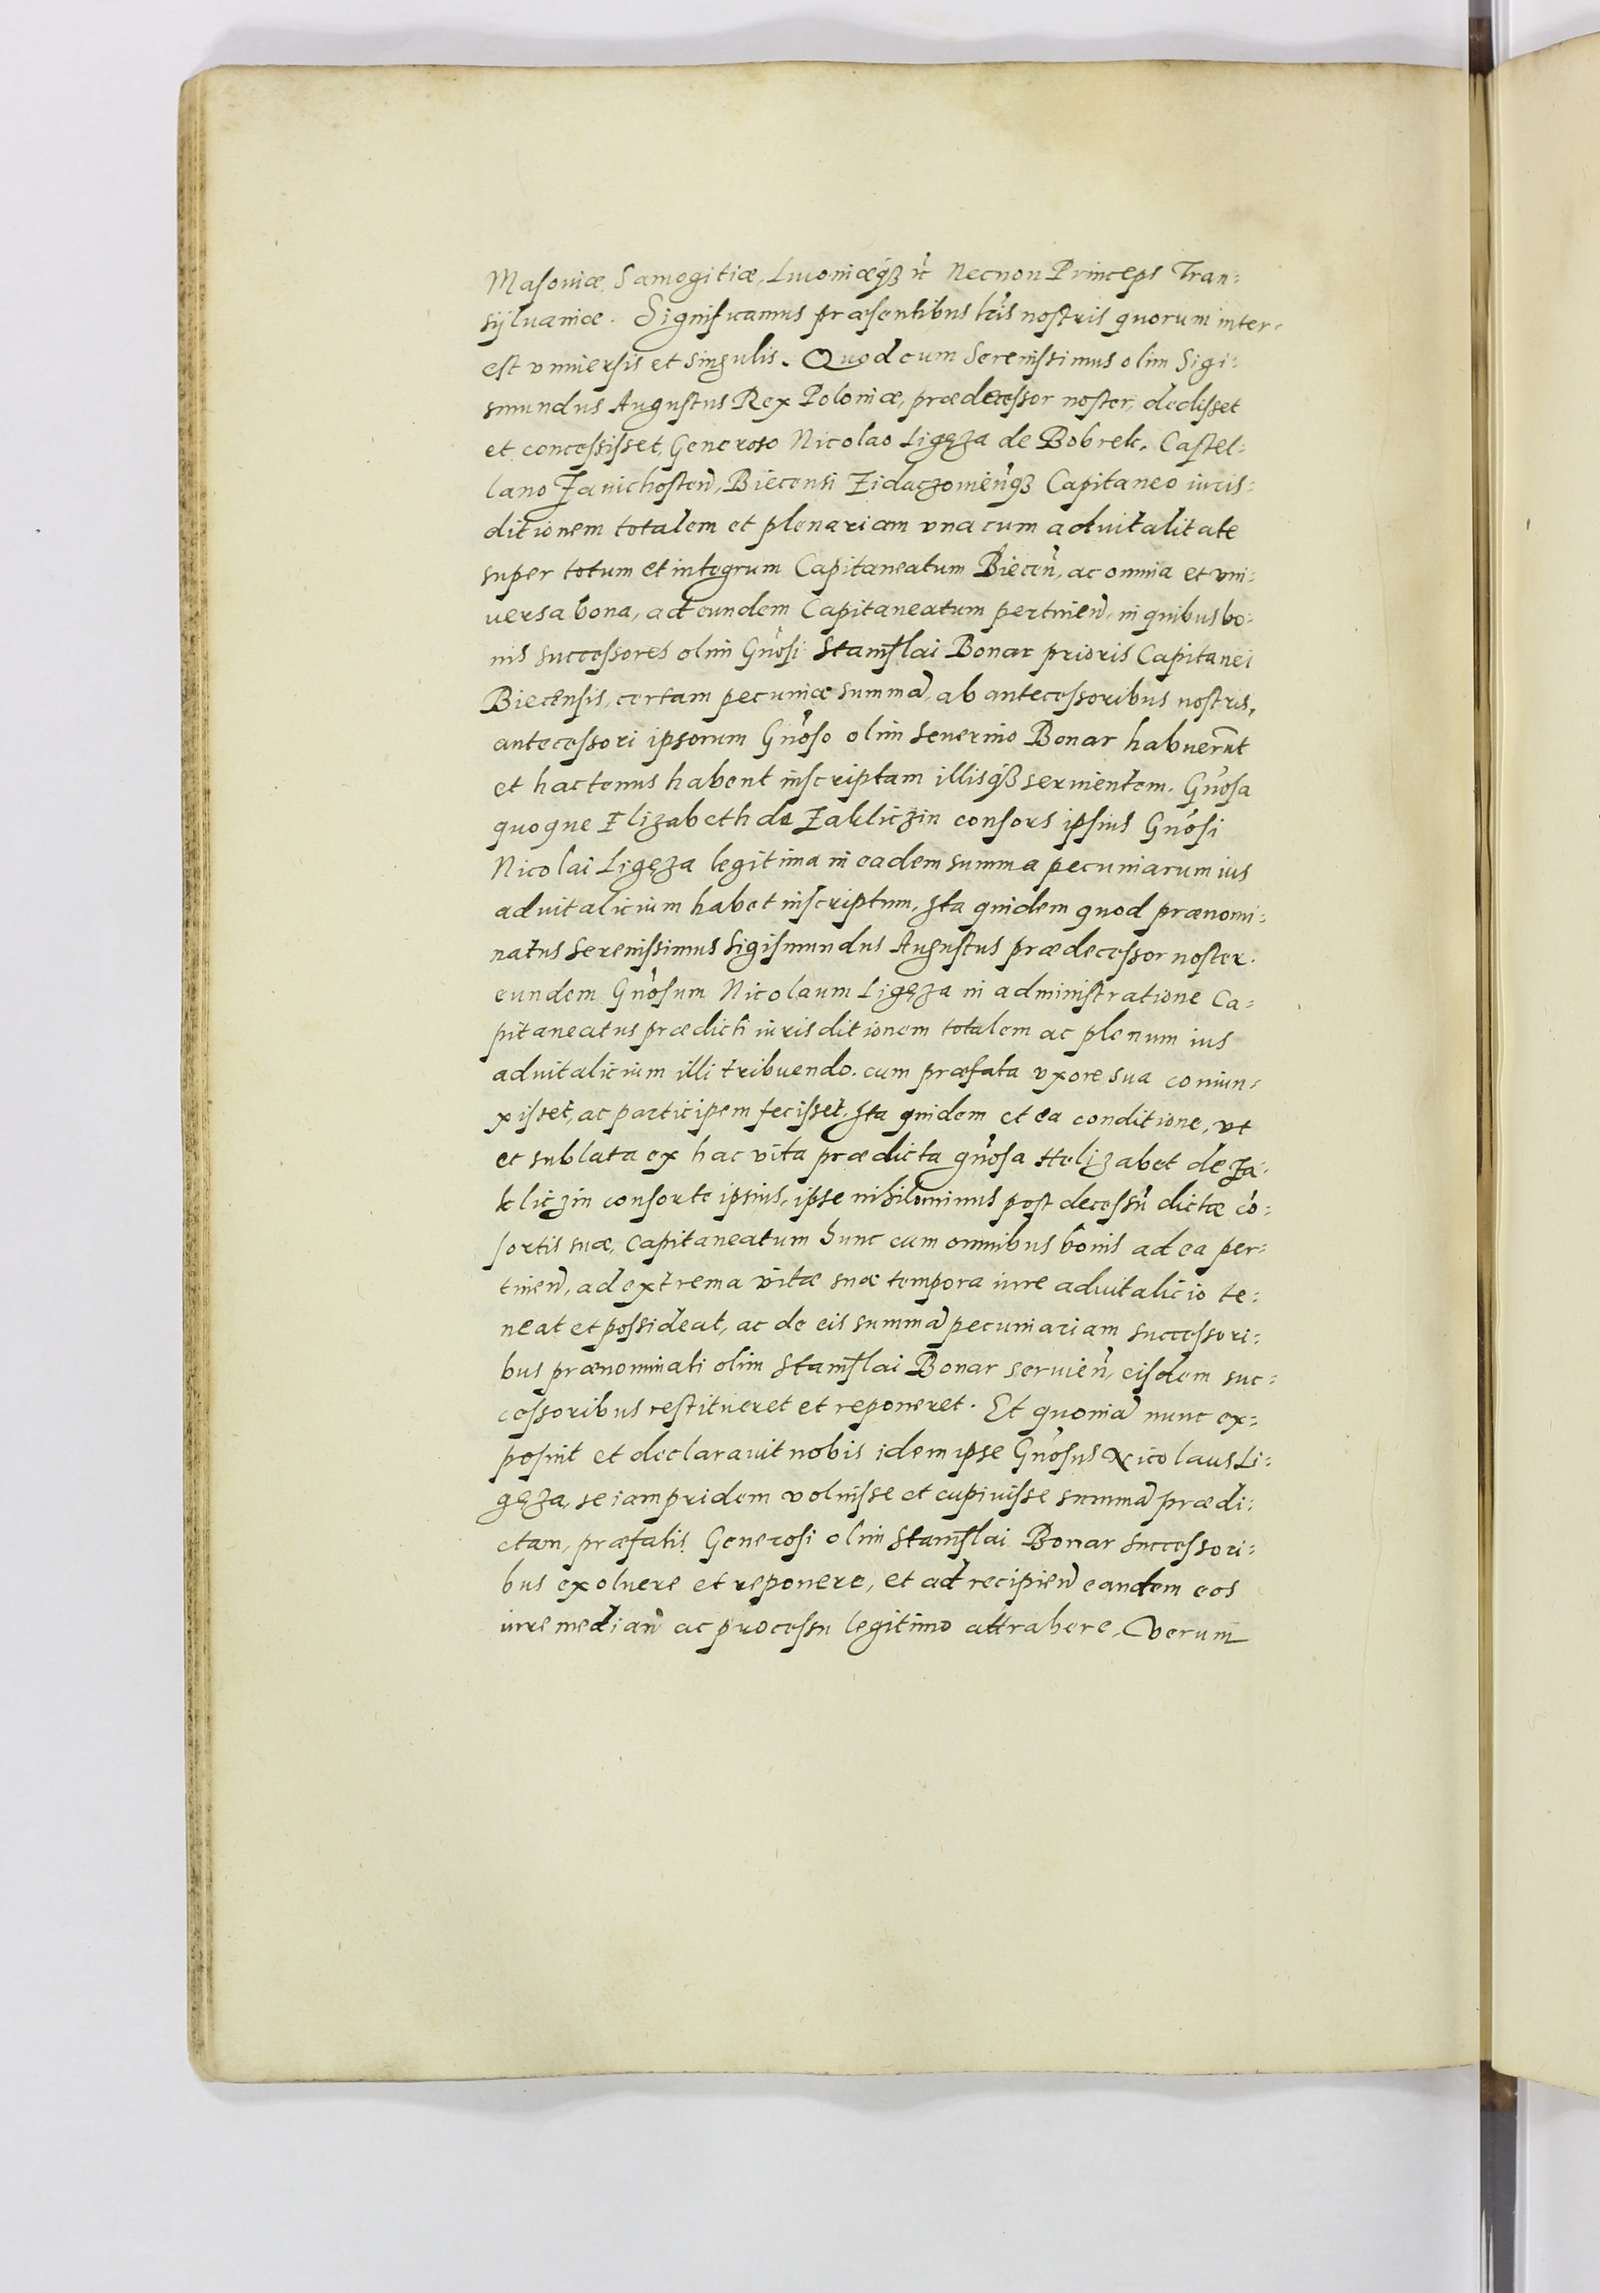 Masoviæ, Samogitiæ, Livoniæqȝ ẽc Necnon Princeps Tran:
sÿlvaniæ. Significamus præsentibus lr̃is nostris quorum inter:
est vniversis et singulis. Quod cum Serenissimus olim Sigi:
smundus Augustus Rex Poloniæ, prædecessor noster, dedisset
et concessisset, Generoso Nicolao Ligęza de Bobrek, Castel:
lano Zavichosteñ, Biecensi Zidaczovieñqȝ Capitaneo iuris:
ditionem totalem et plenariam vna cum advitalitate
super totum et integrum Capitaneatum Bieceñ, ac omnia et vni:
versa bona, ad eundem Capitaneatum pertineñ, in quibus bo:
nis successores olim Gñosi Stanislai Bonar prioris Capitanei
Biecensis, certam pecuniæ summã, ab antecessoribus nostris,
antecessori ipsorum Gñoso olim Severino Bonar habuerũt
et hactenus habent inscriptam illisqȝ servientem. Gñosa
quoque Elizabeth de Zakliczin consors ipsius Gñosi
Nicolai Ligęza legitima in eadem summa pecuniarum ius
advitalicium habet inscriptum, Ita quidem quod prænomi:
natus Serenissimus Sigismundus Augustus prædecessor noster.
eundem Gñosum Nicolaum Ligęza in administratione Ca:
pitaneatus prædicti iurisditionem totalem ac plenum ius
advitalicium illi tribuendo. cum præfata vxore sua coniun:
xisset, ac participem fecisset. Ita quidem et ea conditione, vt
et sublata ex hac vita prædicta gñosa Helizabet de Za:
kliczin consorte ipsius, ipse nihilominus post decessũ dictæ cõ:
sortis suæ, Capitaneatum hunc cum omnibus bonis ad ea per:
tineñ, ad extrema vitæ suæ tempora iure advitalicio te:
neat et possideat, ac de eis summã pecuniariam successori:
bus prænominati olim Stanislai Bonar servieñ, eisdem suc:
cessoribus restitueret et reponeret. Et quoniã nunc ex:
posuit et declaravit nobis idem ipse Gñosus Nicolaus Li:
gęza, se iam pridem voluisse et cupivisse summã prædi:
ctam, præfatis Generosi olim Stanislai Bonar successori:
bus exolvere et reponere, et ad recipieñ eandem eos
iure mediañ ac processu legitimo attrahere, Verum